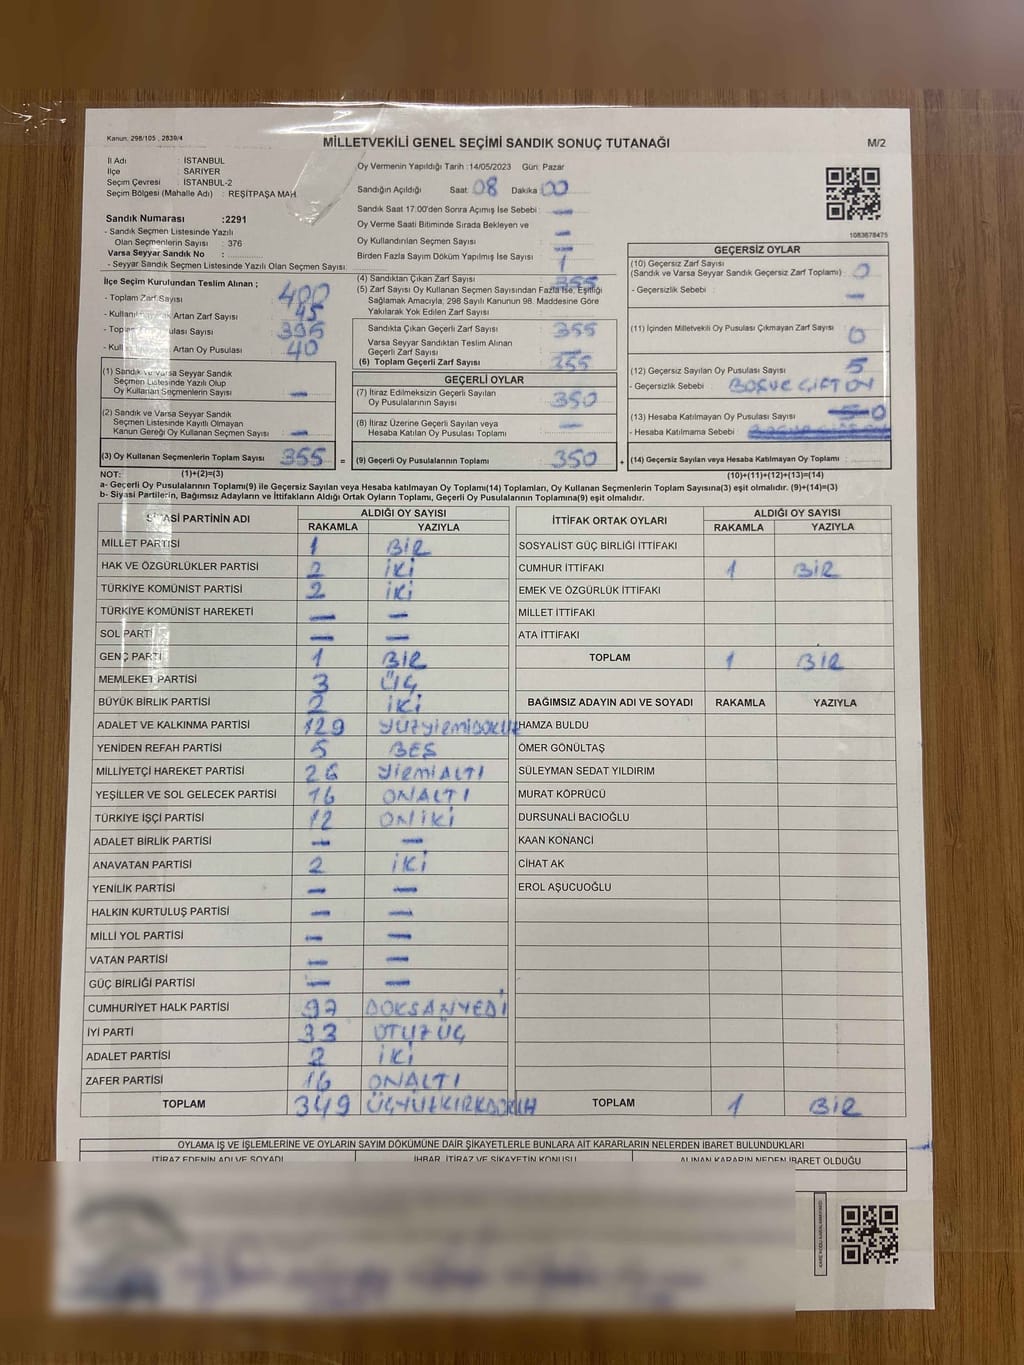 Kanun. 298/105 , 2839/4
MİLLETVEKİLİ GENEL SEÇİMİ SANDIK SONUÇ TUTANAĞI
M/2
İl Adı : İSTANBUL
İlçe : SARIYER
Seçim Çevresi : İSTANBUL-2
Seçim Bölgesi (Mahalle Adı) : REŞİTPAŞA MAH.
Sandık Numarası :2291
- Sandık Seçmen Listesinde Yazılı
Olan Seçmenlerin Sayısı : 376
Varsa Seyyar Sandık No :
- Seyyar Sandık Seçmen Listesinde Yazılı Olan Seçmen Sayısı:
Oy Vermenin Yapıldığı Tarih : 14/05/2023 Gün: Pazar
Sandığın Açıldığı Saat: 08 Dakika 00
Sandık Saat 17:00'den Sonra Açımış İse Sebebi : —
Oy Verme Saati Bitiminde Sırada Bekleyen ve
Oy Kullandırılan Seçmen Sayısı : —
Birden Fazla Sayım Döküm Yapılmış İse Sayısı : 1
1083678475
İlçe Seçim Kurulundan Teslim Alınan ;
- Toplam Zarf Sayısı : 400
Artan Zarf Sayısı : 45
Sayısı : 395
Artan Oy Pusulası : 40
(1) Sandık ve Varsa Seyyar Sandık
Seçmen Listesinde Yazılı Olup
Oy Kullanan Seçmenlerin Sayısı : —
(2) Sandık ve Varsa Seyyar Sandık
Seçmen Listesinde Kayıtlı Olmayan
Kanun Gereği Oy Kullanan Seçmen Sayısı : —
(3) Oy Kullanan Seçmenlerin Toplam Sayısı 355 =
(4) Sandıktan Çıkan Zarf Sayısı : 355
(5) Zarf Sayısı Oy Kullanan Seçmen Sayısından Fazla İse, Eşitliği
Sağlamak Amacıyla, 298 Sayılı Kanunun 98. Maddesine Göre
Yakılarak Yok Edilen Zarf Sayısı :
Sandıkta Çıkan Geçerli Zarf Sayısı : 355
Varsa Seyyar Sandıktan Teslim Alınan
Geçerli Zarf Sayısı : —
(6) Toplam Geçerli Zarf Sayısı : 355
GEÇERLİ OYLAR
(7) İtiraz Edilmeksizin Geçerli Sayılan
Oy Pusulalarının Sayısı : 350
(8) İtiraz Üzerine Geçerli Sayılan veya
Hesaba Katılan Oy Pusulası Toplamı : —
(9) Geçerli Oy Pusulalarının Toplamı : 350 +
GEÇERSİZ OYLAR
(10) Geçersiz Zarf Sayısı
(Sandık ve Varsa Seyyar Sandık Geçersiz Zarf Toplamı) : 0
- Geçersizlik Sebebi : —
(11) İçinden Milletvekili Oy Pusulası Çıkmayan Zarf Sayısı : 0
(12) Geçersiz Sayılan Oy Pusulası Sayısı : 5
- Geçersizlik Sebebi : BOŞ VE ÇİFT OY
(13) Hesaba Katılmayan Oy Pusulası Sayısı : 0
- Hesaba Katılmama Sebebi :
(14) Geçersiz Sayılan veya Hesaba Katılmayan Oy Toplamı :
NOT: (1)+(2)=(3) (10)+(11)+(12)+(13)=(14)
a- Geçerli Oy Pusulalarının Toplamı(9) ile Geçersiz Sayılan veya Hesaba katılmayan Oy Toplamı(14) Toplamları, Oy Kullanan Seçmenlerin Toplam Sayısına(3) eşit olmalıdır. (9)+(14)=(3)
b- Siyasi Partilerin, Bağımsız Adayların ve İttifakların Aldığı Ortak Oyların Toplamı, Geçerli Oy Pusulalarının Toplamına(9) eşit olmalıdır.
SİYASİ PARTİNİN ADI ALDIĞI OY SAYISI
RAKAMLA YAZIYLA
MİLLET PARTİSİ 1 BİR
HAK VE ÖZGÜRLÜKLER PARTİSİ 2 İKİ
TÜRKİYE KOMÜNİST PARTİSİ 2 İKİ
TÜRKİYE KOMÜNİST HAREKETİ — —
SOL PARTİ — —
GENÇ PARTİ 1 BİR
MEMLEKET PARTİSİ 3 ÜÇ
BÜYÜK BİRLİK PARTİSİ 2 İKİ
ADALET VE KALKINMA PARTİSİ 129 YÜZYİRMİDOKUZ
YENİDEN REFAH PARTİSİ 5 BEŞ
MİLLİYETÇİ HAREKET PARTİSİ 26 YİRMİALTI
YEŞİLLER VE SOL GELECEK PARTİSİ 16 ONALTI
TÜRKİYE İŞÇİ PARTİSİ 12 ONİKİ
ADALET BİRLİK PARTİSİ — —
ANAVATAN PARTİSİ 2 İKİ
YENİLİK PARTİSİ — —
HALKIN KURTULUŞ PARTİSİ — —
MİLLİ YOL PARTİSİ — —
VATAN PARTİSİ — —
GÜÇ BİRLİĞİ PARTİSİ — —
CUMHURİYET HALK PARTİSİ 97 DOKSANYEDİ
İYİ PARTİ 33 OTUZÜÇ
ADALET PARTİSİ 2 İKİ
ZAFER PARTİSİ 16 ONALTI
TOPLAM 349
İTTİFAK ORTAK OYLARI ALDIĞI OY SAYISI
RAKAMLA YAZIYLA
SOSYALİST GÜÇ BİRLİĞİ İTTİFAKI
CUMHUR İTTİFAKI 1 BİR
EMEK VE ÖZGÜRLÜK İTTİFAKI
MİLLET İTTİFAKI
ATA İTTİFAKI
TOPLAM 1 BİR
BAĞIMSIZ ADAYIN ADI VE SOYADI RAKAMLA YAZIYLA
HAMZA BULDU
ÖMER GÖNÜLTAŞ
SÜLEYMAN SEDAT YILDIRIM
MURAT KÖPRÜCÜ
DURSUNALİ BACIOĞLU
KAAN KONANCİ
CİHAT AK
EROL AŞUCUOĞLU
TOPLAM 1 BİR
OYLAMA İŞ VE İŞLEMLERİNE VE OYLARIN SAYIM DÖKÜMÜNE DAİR ŞİKAYETLERLE BUNLARA AİT KARARLARIN NELERDEN İBARET BULUNDUKLARI
İTİRAZ EDENİN ADI VE SOYADI İHBAR, İTİRAZ VE ŞİKAYETİN KONUSU ALINAN KARARIN NEDEN İBARET OLDUĞU